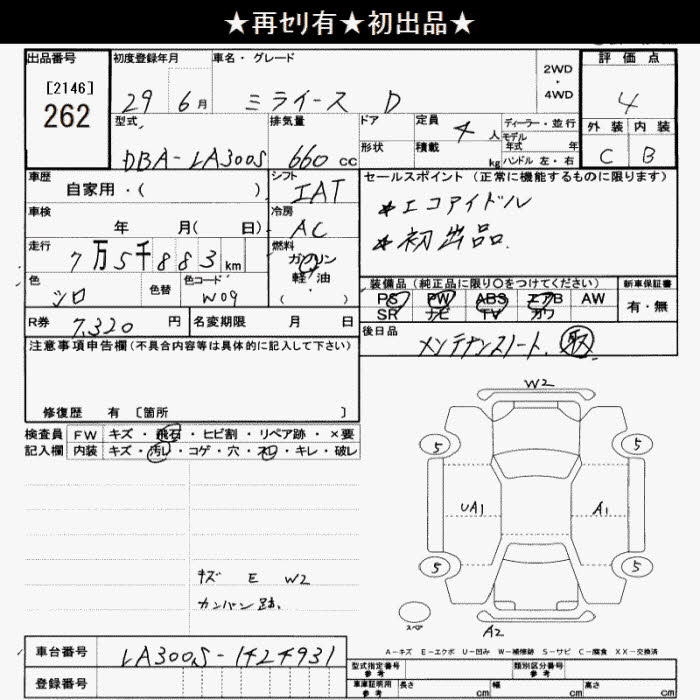 ★再セリ有★初出品★
出品番号 初度登録年月 車名・グレード 2WD・4WD 評価点
[2146]
262
29 6月 ミライース D 4
型式 排気量 ドア 定員 4人 ディーラー・並行 外装 内装
モデル年式 年
DBA-LA300S 660cc 形状 積載 kg ハンドル 左・右 C B
車歴 シフト セールスポイント (正常に機能するものに限ります)
自家用・( ) IAT
*エコアイドル
車検 冷房
年 月( 日) AC
*初出品.
走行 燃料
7万5千883km ガソリン
軽・油
( )
色 色替 色コード 装備品 (純正品に限り○をつけてください) 新車保証書
シロ W09 PS PW ABS エアB AW 有・無
SR ナビ TV カワ
R券 7,320 円 名変期限 月 日 後日品
メンテナンスノート. 取
注意事項申告欄 (不具合内容等は具体的に記入して下さい)
修復歴 有 [箇所 ]
検査員 FW キズ・飛石・ヒビ割・リペア跡・×要
記入欄 内装 キズ・汚レ・コゲ・穴・スレ・キレ・破レ
W2
5 5
UA1 A1
5 5
キズ E W2
カンバン跡.
スペア
A2
A-キズ E-エクボ U-凹み W-補修跡 S-サビ C-腐食 XX-交換済
車台番号 LA300S-1424931
型式指定番号 参考 類別区分番号 参考
登録番号 車庫証明用 参考 長さ cm 幅 cm 高さ cm